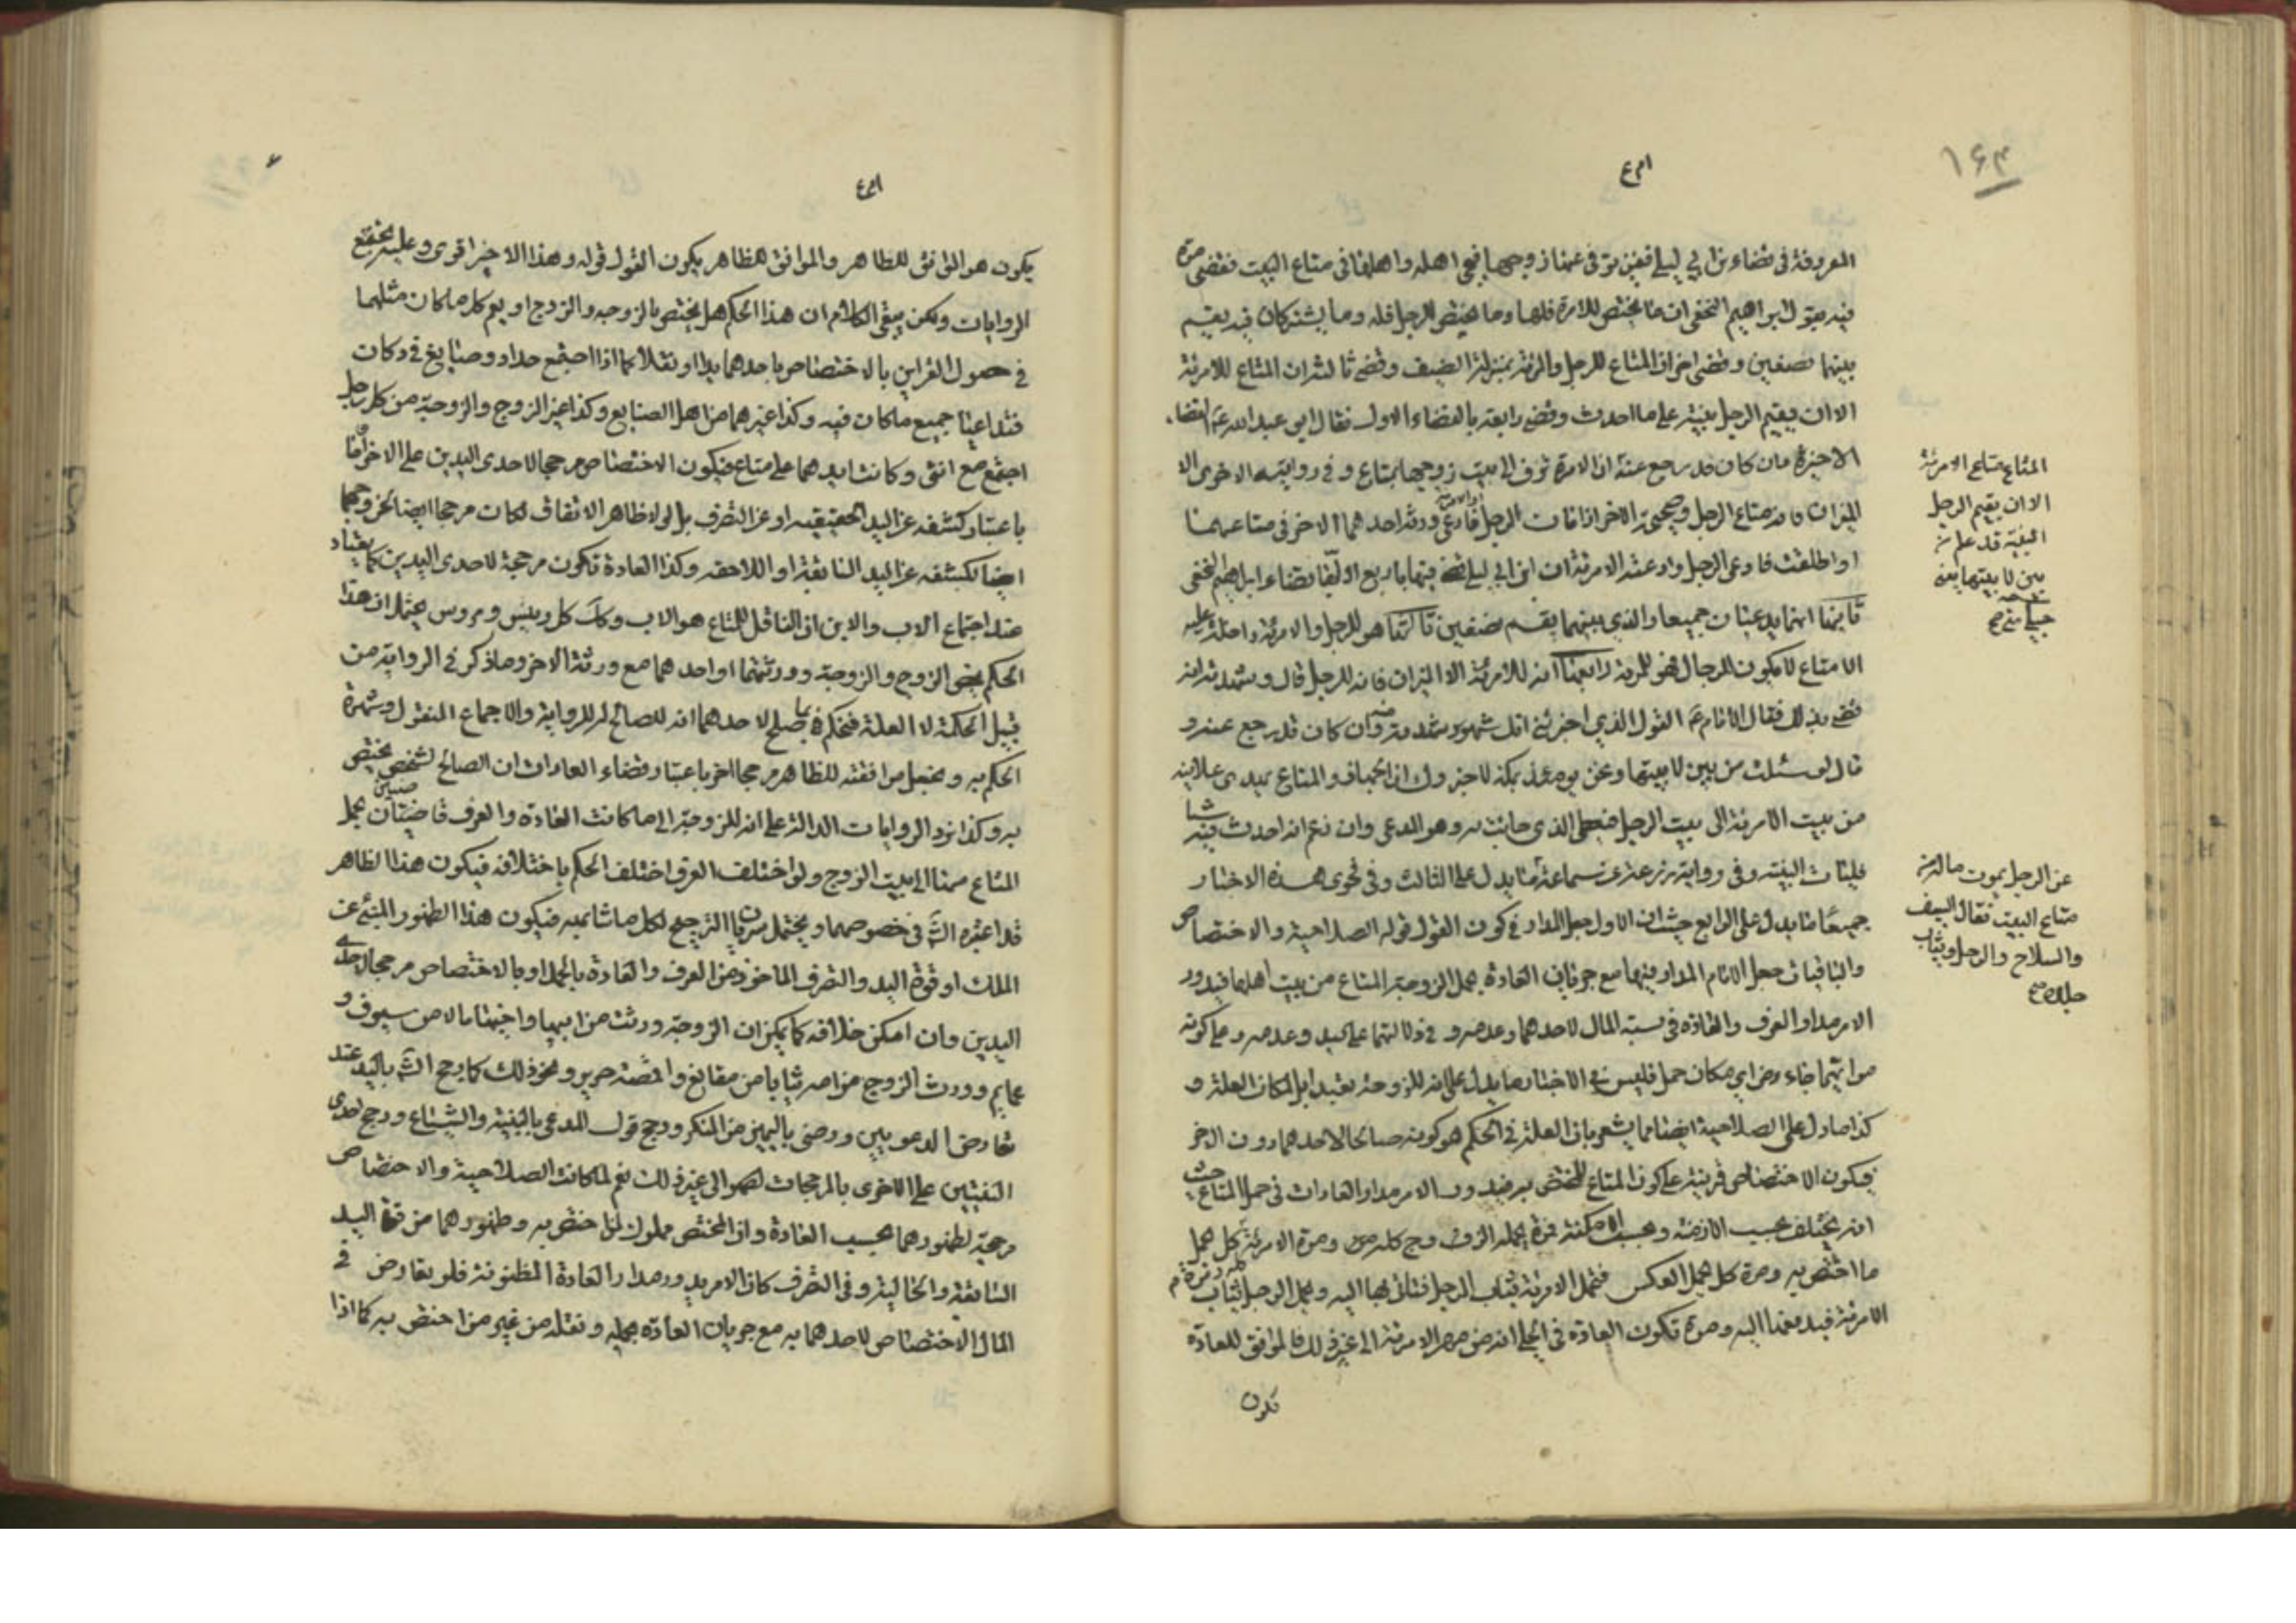 ۱۶۳
المعروفة في قضاء بن ابي ليلى فيمن توفى عنها زوجها فيجي اهله واهلها في متاع البيت فقضى مرة
فيه بقول ابراهيم النخعي ان ما يختص للامرة فلها وما يختص للرجل فله وما يشتركان فيه يقسم
بينهما نصفين وقضى اخرى ان المتاع للرجل والمرئة بمنزلة الضيف وقضى ثالثة ان المتاع للامرئة
الا ان يقيم الرجل بينة على ما احدث وقضى رابعة بالقضاء الاول فقال ابي عبد الله القضاء
الاخيرة وان كان قد رجع عنه ان الامرة تزف الى بيت زوجها بمتاع وفي روايته الاخرى الا
الميزان فانه متاع الرجل وصحيحة الاخر اذا مات الرجل فادعى ورثة احدهما الاخر في متاعهما
او اطلقت فادعى الرجل وادعته الامرئة ان ابن ابي ليلى قضى فيها باربع اولها بقضاء ابراهيم النخعي
ثانيها انهما يدعيان جميعا والذي بينهما يقسم نصفين ثالثها هو للرجل والامرئة داخلة عليه
الا متاع لا يكون للرجال فهو للمرئة رابعها انه للامرئة الا الميزان فانه للرجل قال وشهدته انه
قضى بذلك فقال الامام القول الذي اخبرني انك شهدته منه وان كان قد رجع عنه و
قال لو سئلت من بين لابيتها ونحن يومئذ بمكة لاخبروك ان الجهاز والمتاع يهدى علانية
من بيت الامرئة الى بيت الرجل فيعطى الذي جائت به وهو المدعي وان زعم انه احدث فيه شيئا
فليات البينة وفي رواية زرعة عن سماعة ما يدل على الثالث وفي فحوى هذه الاخبار
جميعا ما يدل على الرابع حيث ان الاول جعل المدار في كون القول قوله الصلاحية والاختصاص
والباقيات جعل الامام المدار فيها مع جريان العادة بحمل الزوجة المتاع من بيت اهلها فيدور
الامر مدار العرف والعادة في نسبة المال لاحدهما وعدمه و في دلالتهما على اليد وعدمه وعلى كونه
من ايهما جاء ومن اي مكان حمل فليس في الاخبار ما يدل على انه للزوجة تعبدا بل لمكان العلة و
كذا ما دل على الصلاحية ايضا مما يشعر بان العلة في الحكم هو كونه صالحا لاحدهما دون الاخر
فيكون الاختصاص قرينة على كون المتاع للمختص به فيدور الامر مدار العادات في حمل المتاع حيث
انه يختلف بحسب الازمنة وبحسب الامكنة فمرة يحمله الزوج كله ومرة الامرئة كله ومرة كل يحمل
ما اختص به ومرة كل يحمل العكس فتحمل الامرئة ثياب الرجل فتاتي بها اليه ويحمل الرجل ثياب
الامرئة فيبعثها اليه ومرة تكون العادة في الحلي انه من مهر الامرئة الى غير ذلك فالموافق للعادة
يكون
المتاع متاع الامرئة
الا ان يقيم الرجل
البينة قد علم من
بين لابيتها يعني
جبلي منى صح
عن الرجل يموت ماله من
متاع البيت فقال السيف
والسلاح والرحل وثياب
جلده صح
يكون هو الموافق للظاهر والموافق للظاهر يكون القول قوله وهذا الاخير اقوى وعليه يجتمع
الروايات ولكن يبقى الكلام ان هذا الحكم هل يختص بالزوجه والزوج او يعم كل ما كان مثلهما
في حصول القراين بالاختصاص باحدهما يدا او نقلا كما اذا اجتمع حداد وصايغ في دكان
فتداعيا جميع ما كان فيه وكذا غيرهما من اهل الصنايع وكذا غير الزوج والزوجة من كل رجل
اجتمع مع انثى وكانت ايديهما على متاع فيكون الاختصاص مرجحا لاحدى اليدين على الاخرى اما
باعتبار كشفه عن اليد الحقيقيه او عن التصرف بل لو لا ظاهر الاتفاق لكان مرجحا ايضا لخروجهما
ايضا لكشفه عن اليد السابقة او اللاحقه وكذا العادة تكون مرجحة لاحدى اليدين كما يعتاد
عند اجتماع الاب والابن ان الناقل للمتاع هو الاب وكذا كل رئيس ومرؤس يحتمل ان هذا
الحكم يخص الزوج والزوجة وورثتهما او احدهما مع ورثة الاخر وما ذكر في الرواية من
قبيل الحكمة لا العلة فيحكم فيما يصلح لاحدهما انه للصالح له للرواية والاجماع المنقول وشهرة
الحكم به ويجعل موافقته للظاهر مرجحا اخر باعتبار قضاء العادات ان الصالح لشخص يختص
به وكذا نرد الروايات الدالة على انه للزوجة الى ما كانت العادة والعرف قاضيتان بحمل
المتاع منها الى بيت الزوج ولو اختلف العرف اختلف الحكم باختلافه فيكون هذا الظاهر
قد اعتبره الش في خصوصهما ويحتمل سريان الترجيح لكل ما شابهه فيكون هذا الظهور المنبئ عن
الملك او قوة اليد والتصرف الماخوذ من العرف والعادة بالحمل او بالاختصاص مرجحا لاحدى
اليدين وان امكن خلافه كما يمكن ان الزوجة ورثت من ابيها واخيها مالا من سيوف و
عمايم وورث الزوج من امه ثيابا من مقانع واقمصة حرير ونحو ذلك كما رجح الش باليد عند
تعارض الدعويين ورضى باليمين من المنكر ورجح قول المدعي بالبينة والشياع ورجح احدى
البينتين على الاخرى بالمرجحات لهما الى غير ذلك نعم لما كانت الصلاحية والاختصاص
مرجحة لظهورهما بحسب العادة وان المختص مملوك لمن اختص به وظهورهما من قوة اليد
السابقة والحالية وفي التصرف كان الامر يدور مدار العادة المظنونة فلو تعارض في
المال الاختصاص لاحدهما به مع جريان العادة بحمله ونقله من غير من اختص به كما اذا